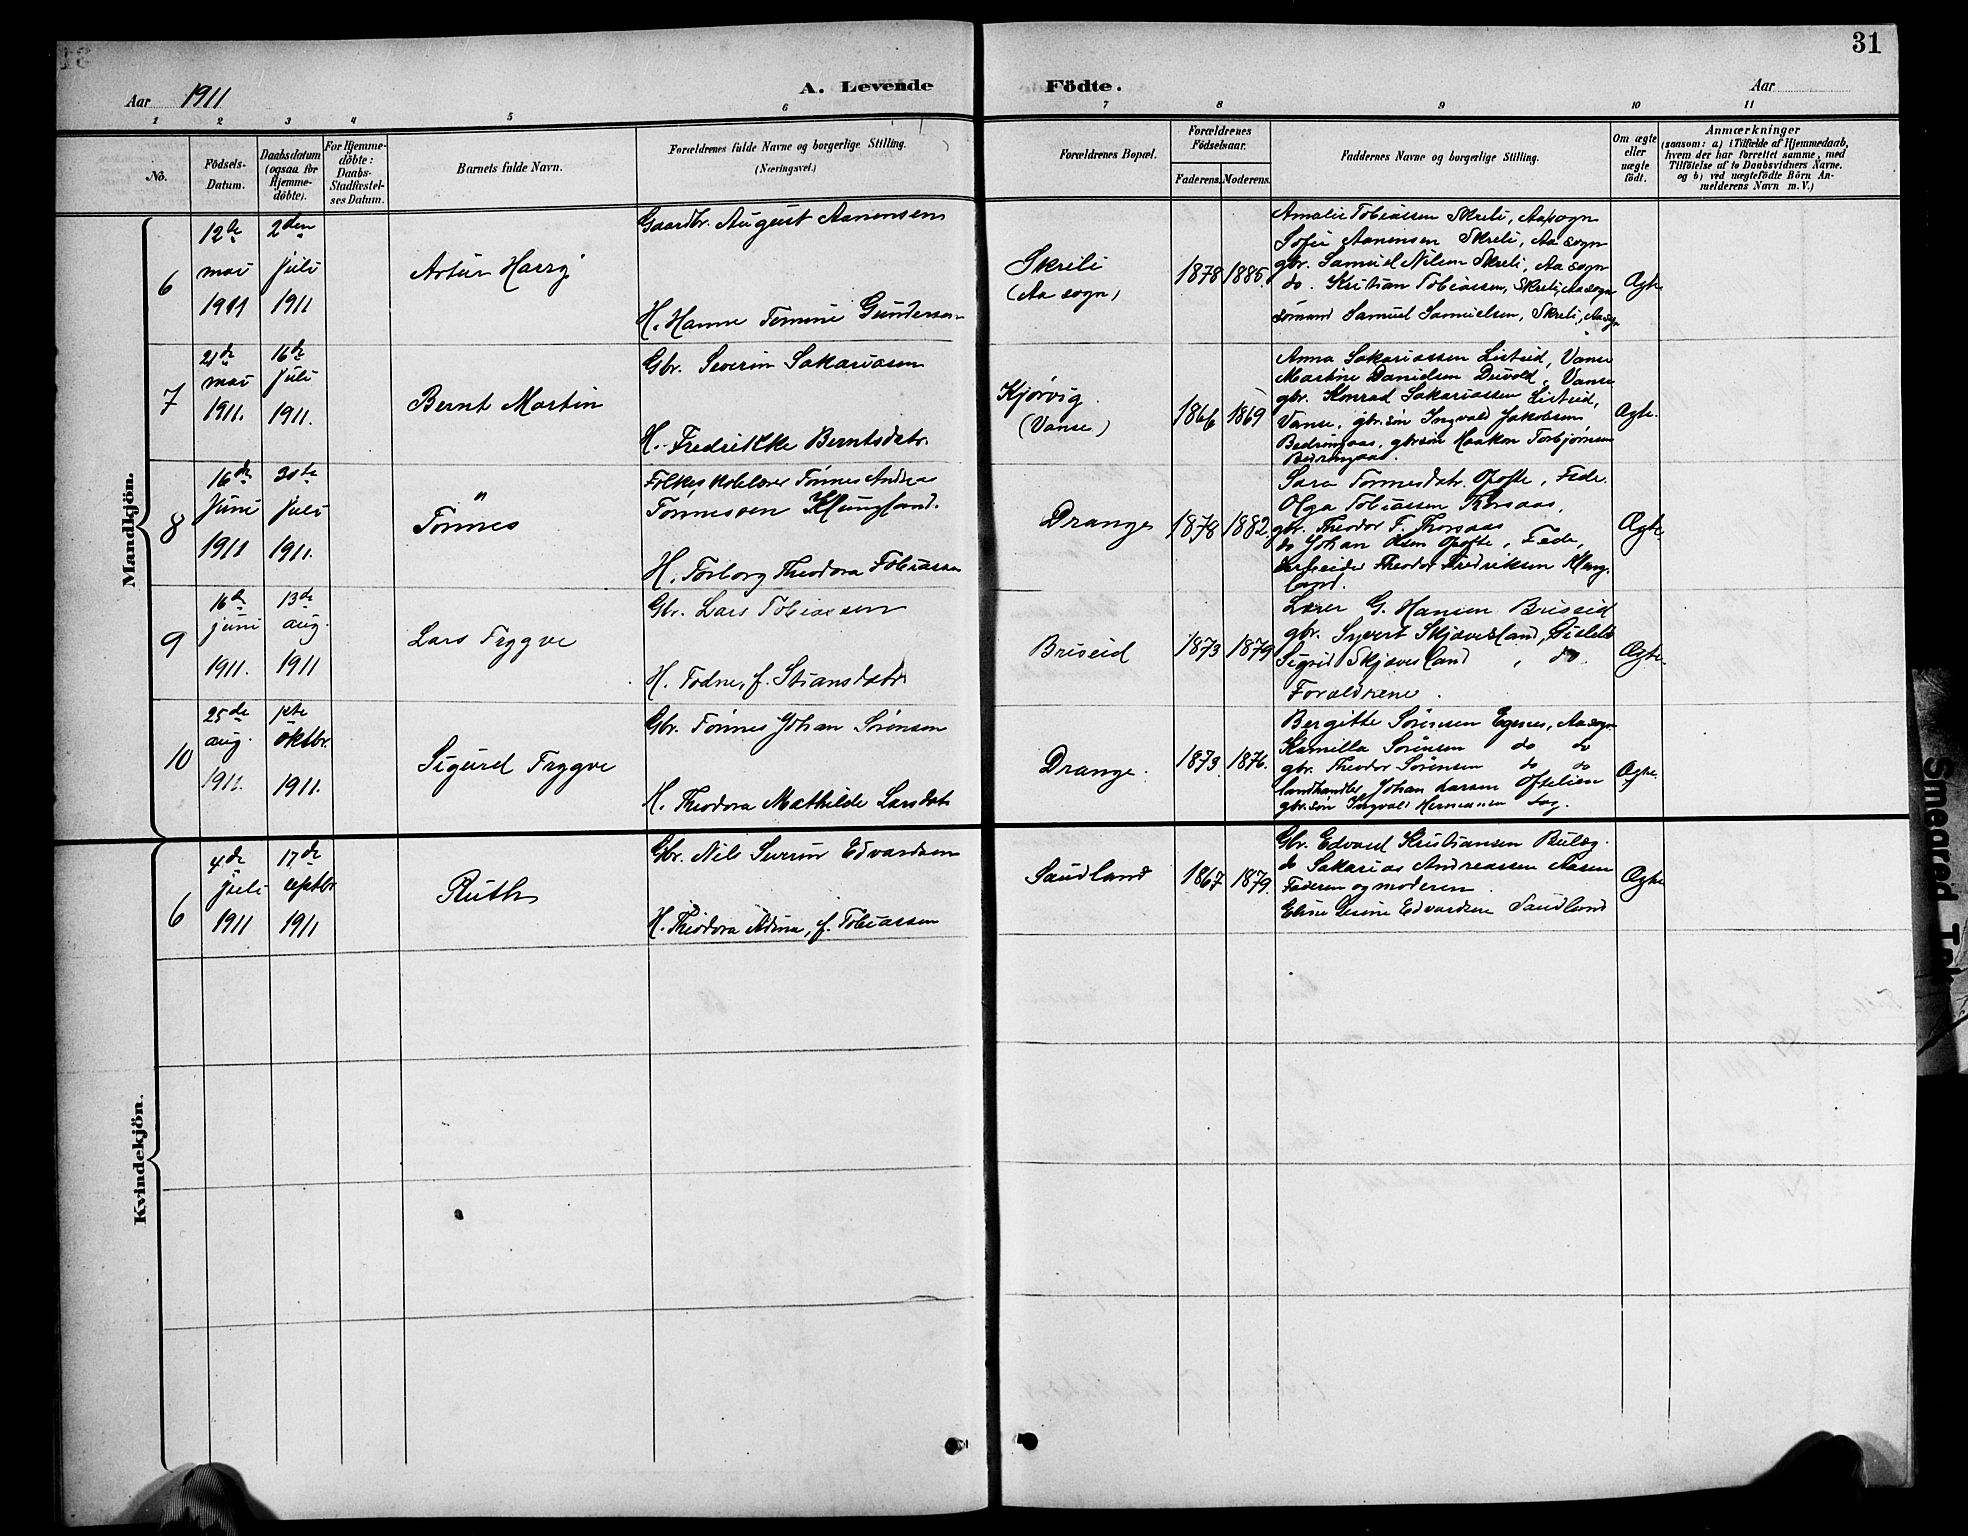 31
Aar 1911
A. Levende
Födte.
Aar
1 2 3 4 5 6 7 8 9 10 11
No.
Födsels-
Datum.
Daabsdatum
(ogsaa for
Hjemme-
döbte).
For Hjemme-
döbte:
Daabs-
Stadfæstel-
ses Datum.
Barnets fulde Navn.
Forældrenes fulde Navne og borgerlige Stilling.
(Næringsvei.)
Forældrenes Bopæl.
Forældrenes
Födselsaar.
Faderens. Moderens.
Faddernes Navne og borgerlige Stilling.
Om ægte
eller
uægte
født.
Anmærkninger
(saasom: a) i Tilfælde af Hjemmedaab,
hvem der har forrettet samme, med
Tilföielse af to Daabsvidners Navne.
og b) ved uægtefødte Börn An-
melderens Navn m. V.)
Mandkjön.
6
12te
mai
1911
2den
Juli
1911
Artur Harry
Gaardbr. August Aanensen
H. Hanne Tomine Gundersen
Skreli
(Aa sogn)
1878 1885.
Amalie Tobiassen Skreli, Aa sogn
Sofie Aanensen Skreli, Aa sogn
gbr. Samuel Nilsen Skreli, Aa sogn
do. Kristian Tobiassen, Skreli, Aa sogn
sömand Samuel Samuelsen, Skreli, Aa sogn
Ægte
7
21de
mai
1911.
16de
Juli
1911.
Bernt Martin
Gbr. Severin Sakariasen
H. Fredrikke Berntsdatr.
Kjørvig.
(Vanse)
1866 1869
Anna Sakariassen Listeid, Vanse
Martine Danielsen Vanse
gbr. Konrad Sakariassen Listeid,
Vanse, gbr.søn Ingvald Jakobsen
Bedringaas, gbr.søn Haakon Torbjørnsen
Bedringaas.
Ægte.
8
16de
Juni
1911
30te
Juli
1911.
Tønnes
Folkeskolelærer Tønnes Andreas
Tønnesen Klungland.
H. Torborg Theodora Tobiassen
Drange
1878 1882.
Sara Tønnesdatr. Opofte, Fede.
Olga Tobiassen Thorsaas,
gbr. Theodor T. Thorsaas
do Johan Olsen Opofte, Fede,
arbeider Theodor Fredriksen Klung-
land.
Ægte.
9
16de
juni
1911.
13de
aug.
1911
Lars Tryggve
Gbr. Lars Tobiassen
H. Todne, f. Stiansdatr
Briseid
1873 1879
Lærer G. Hansen Briseid
gbr. Syvert Skjævesland,
Sigrid Skjævesland, do
Forældrene.
Ægte.
10
25de
aug.
1911.
1ste
oktbr.
1911.
Sigurd Tryggve
Gbr. Tønnes Johan Sørensen
H. Theodora Mathilde Larsdatr
Drange.
1873. 1876.
Bergitte Sørensen Egenes, Aa sogn
Kamilla Sørensen do do
gbr. Theodor Sørensen do do
landhandler Johan Larsen Oftelien
gbr.søn Ingvald Hermansen
Ægte.
Kvindekjön.
6
4de
juli
1911
17de
septbr
1911
Ruth
Gbr. Nils Severin Edvardsen
H. Theodora Adina, f. Tobiassen
Saudland
1867 1879.
Gbr. Edvard Kristiansen Buleg
do Sakarias Andreassen Aasen
Faderen og moderen.
Eline Gurine Edvardsen Saudland
Ægte
Smeared Tekst